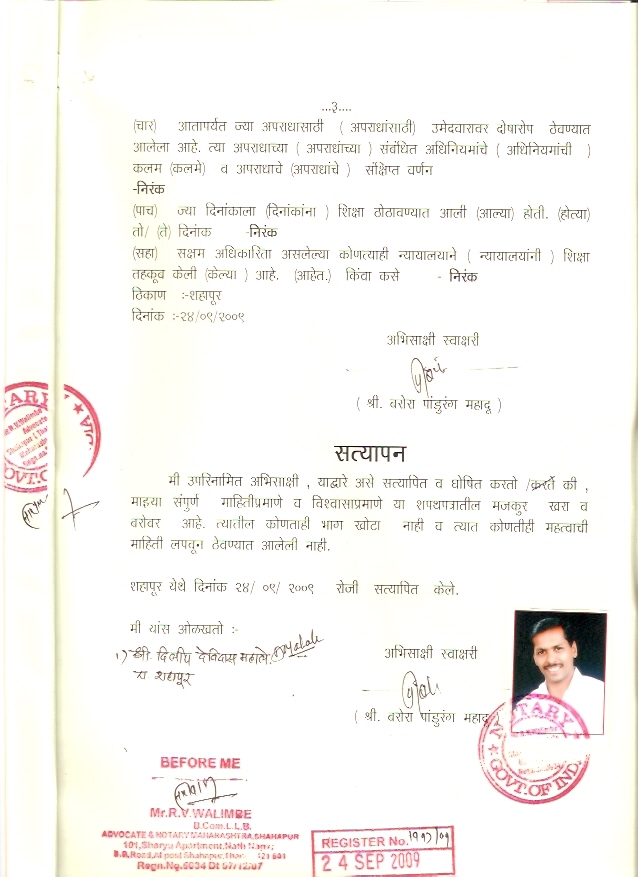 ...३....
(चार) आतापर्यत ज्या अपराधासाठी ( अपराधांसाठी) उमेदवारावर दोषारोप ठेवण्यात
आलेला आहे. त्या अपराधाच्या ( अपराधांच्या ) संबंधित अधिनियमांचे ( अधिनियमांची )
कलम (कलमे) व अपराधाचे (अपराधांचे ) संक्षिप्त वर्णन
-निरंक
(पाच) ज्या दिनांकाला (दिनांकांना ) शिक्षा ठोठावण्यात आली (आल्या) होती. (होत्या)
तो/ (ते) दिनांक -निरंक
(सहा) सक्षम अधिकारिता असलेल्या कोणत्याही न्यायालयाने ( न्यायालयांनी ) शिक्षा
तहकूब केली (केल्या ) आहे. (आहेत.) किंवा कसे - निरंक
ठिकाण :-शहापूर
दिनांक :-२४/०९/२००९
अभिसाक्षी स्वाक्षरी
( श्री. वरोरा पांडुरंग महादू )
सत्यापन
मी उपरिनामित अभिसाक्षी , याद्वारे असे सत्यापित व घोषित करतो /करते की ,
माझ्या संपुर्ण माहितीप्रमाणे व विश्वासाप्रमाणे या शपथपत्रातील मजकुर खरा व
बरोबर आहे. त्यातील कोणताही भाग खोटा नाही व त्यात कोणतीही महत्वाची
माहिती लपवून ठेवण्यात आलेली नाही.
शहापूर येथे दिनांक २४/ ०९/ २००९ रोजी सत्यापित केले.
मी यांस ओळखतो :-
१) श्री. दिलीप देविदास महाले.
रा. शहापूर
अभिसाक्षी स्वाक्षरी
( श्री. वरोरा पांडुरंग महादू )
NOTARY
GOVT. OF IND
BEFORE ME
Mr.R.V.WALIMBE
B.Com.L.L.B.
ADVOCATE & NOTARY MAHARASHTRA,SHAHAPUR
101,Sharyu Apartment,Nath Nagar,
B.B.Road,At post Shahapur,Thane 421 601
Regn.No.6034 Dt 07/12/07
REGISTER No. 1997/09
24 SEP 2009